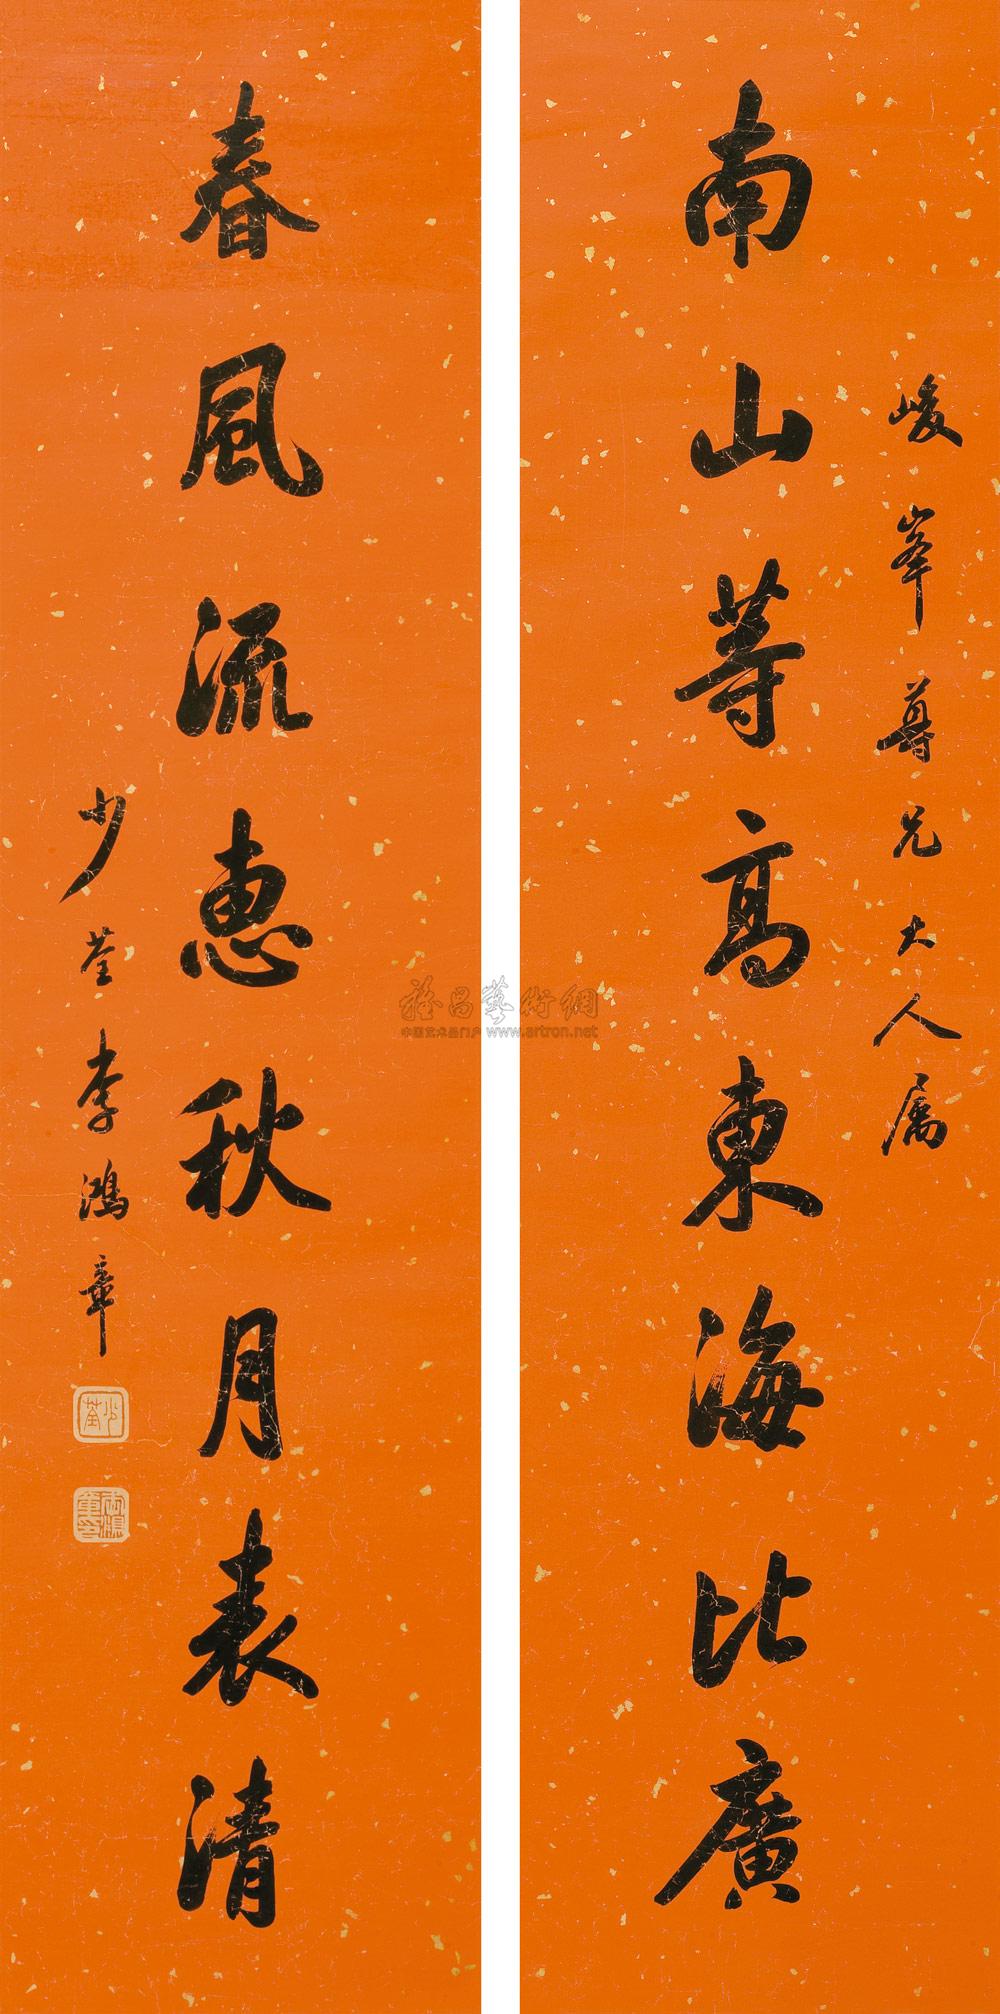 峻峯尊兄大人属
南山等高東海比廣
春風流惠秋月表清
少荃李鴻章
少荃
雅昌藝術網
中国艺术品门户 www.artron.net